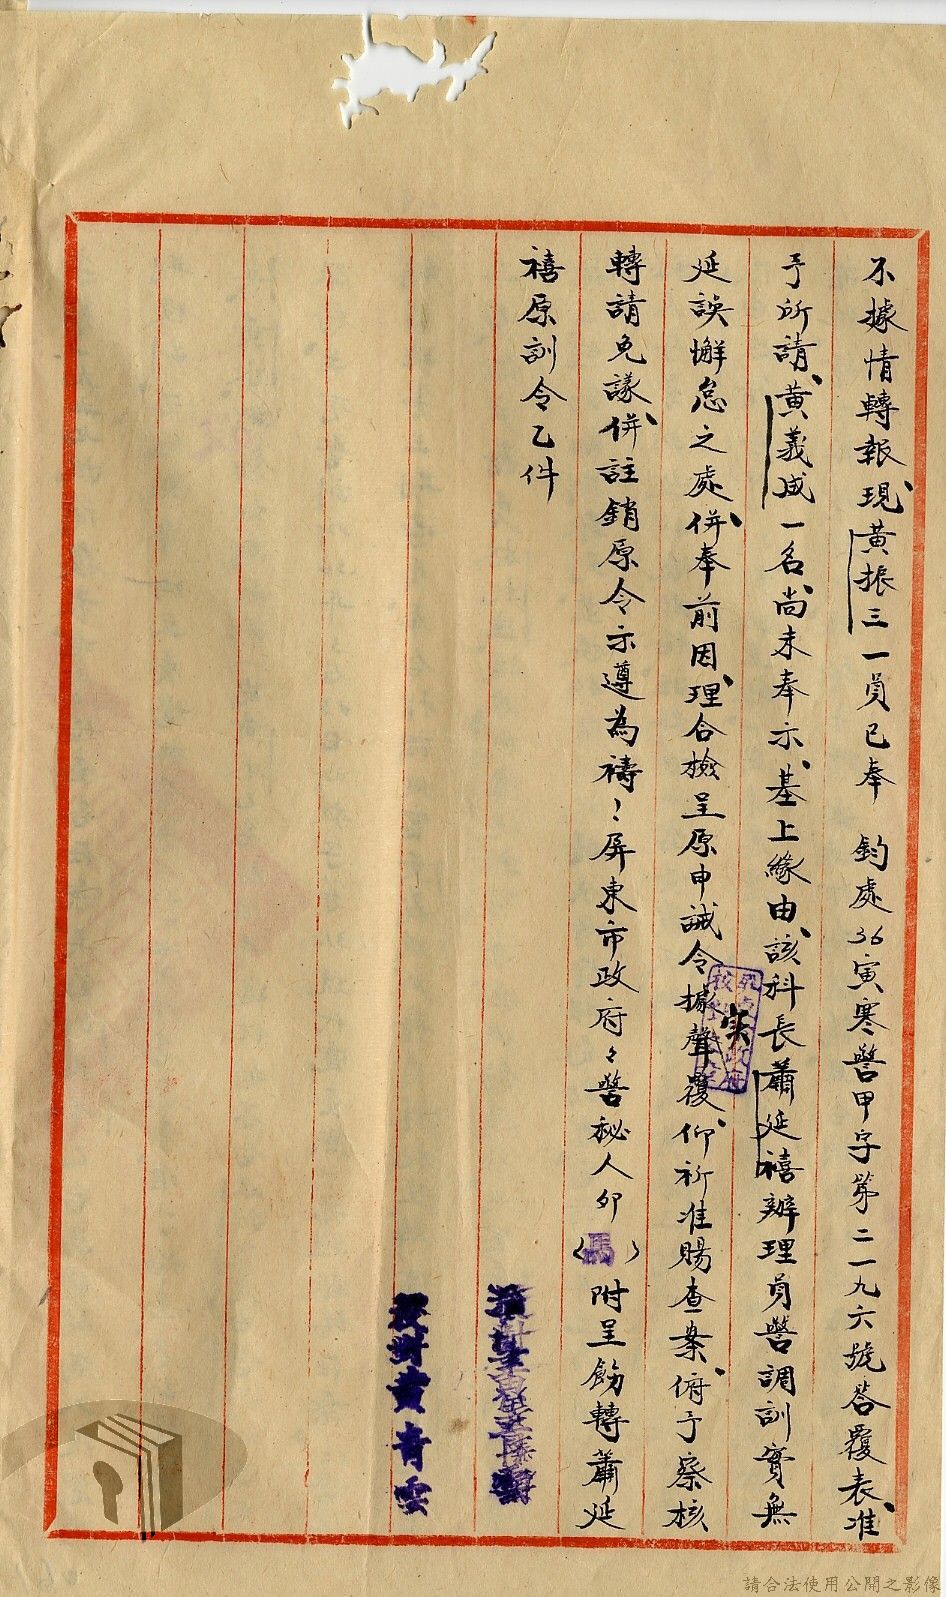 不據情轉報、現黃振三一員已奉　鈞處36寅寒警甲字第二一九六號答覆表、准
予所請、黃義成一名、尚未奉示、基上緣由、該科長蕭延禧辦理員警調訓實無
延誤懈怠之處、併奉前因、理合檢呈原申誡令據實聲覆、仰祈准賜查案、俯予察核
轉請免議、併註銷原令示遵為禱！屏東市政府々警秘人卯（馬）附呈飭轉蕭延
禧原訓令乙件
校對黃青雲
請合法使用公開之影像